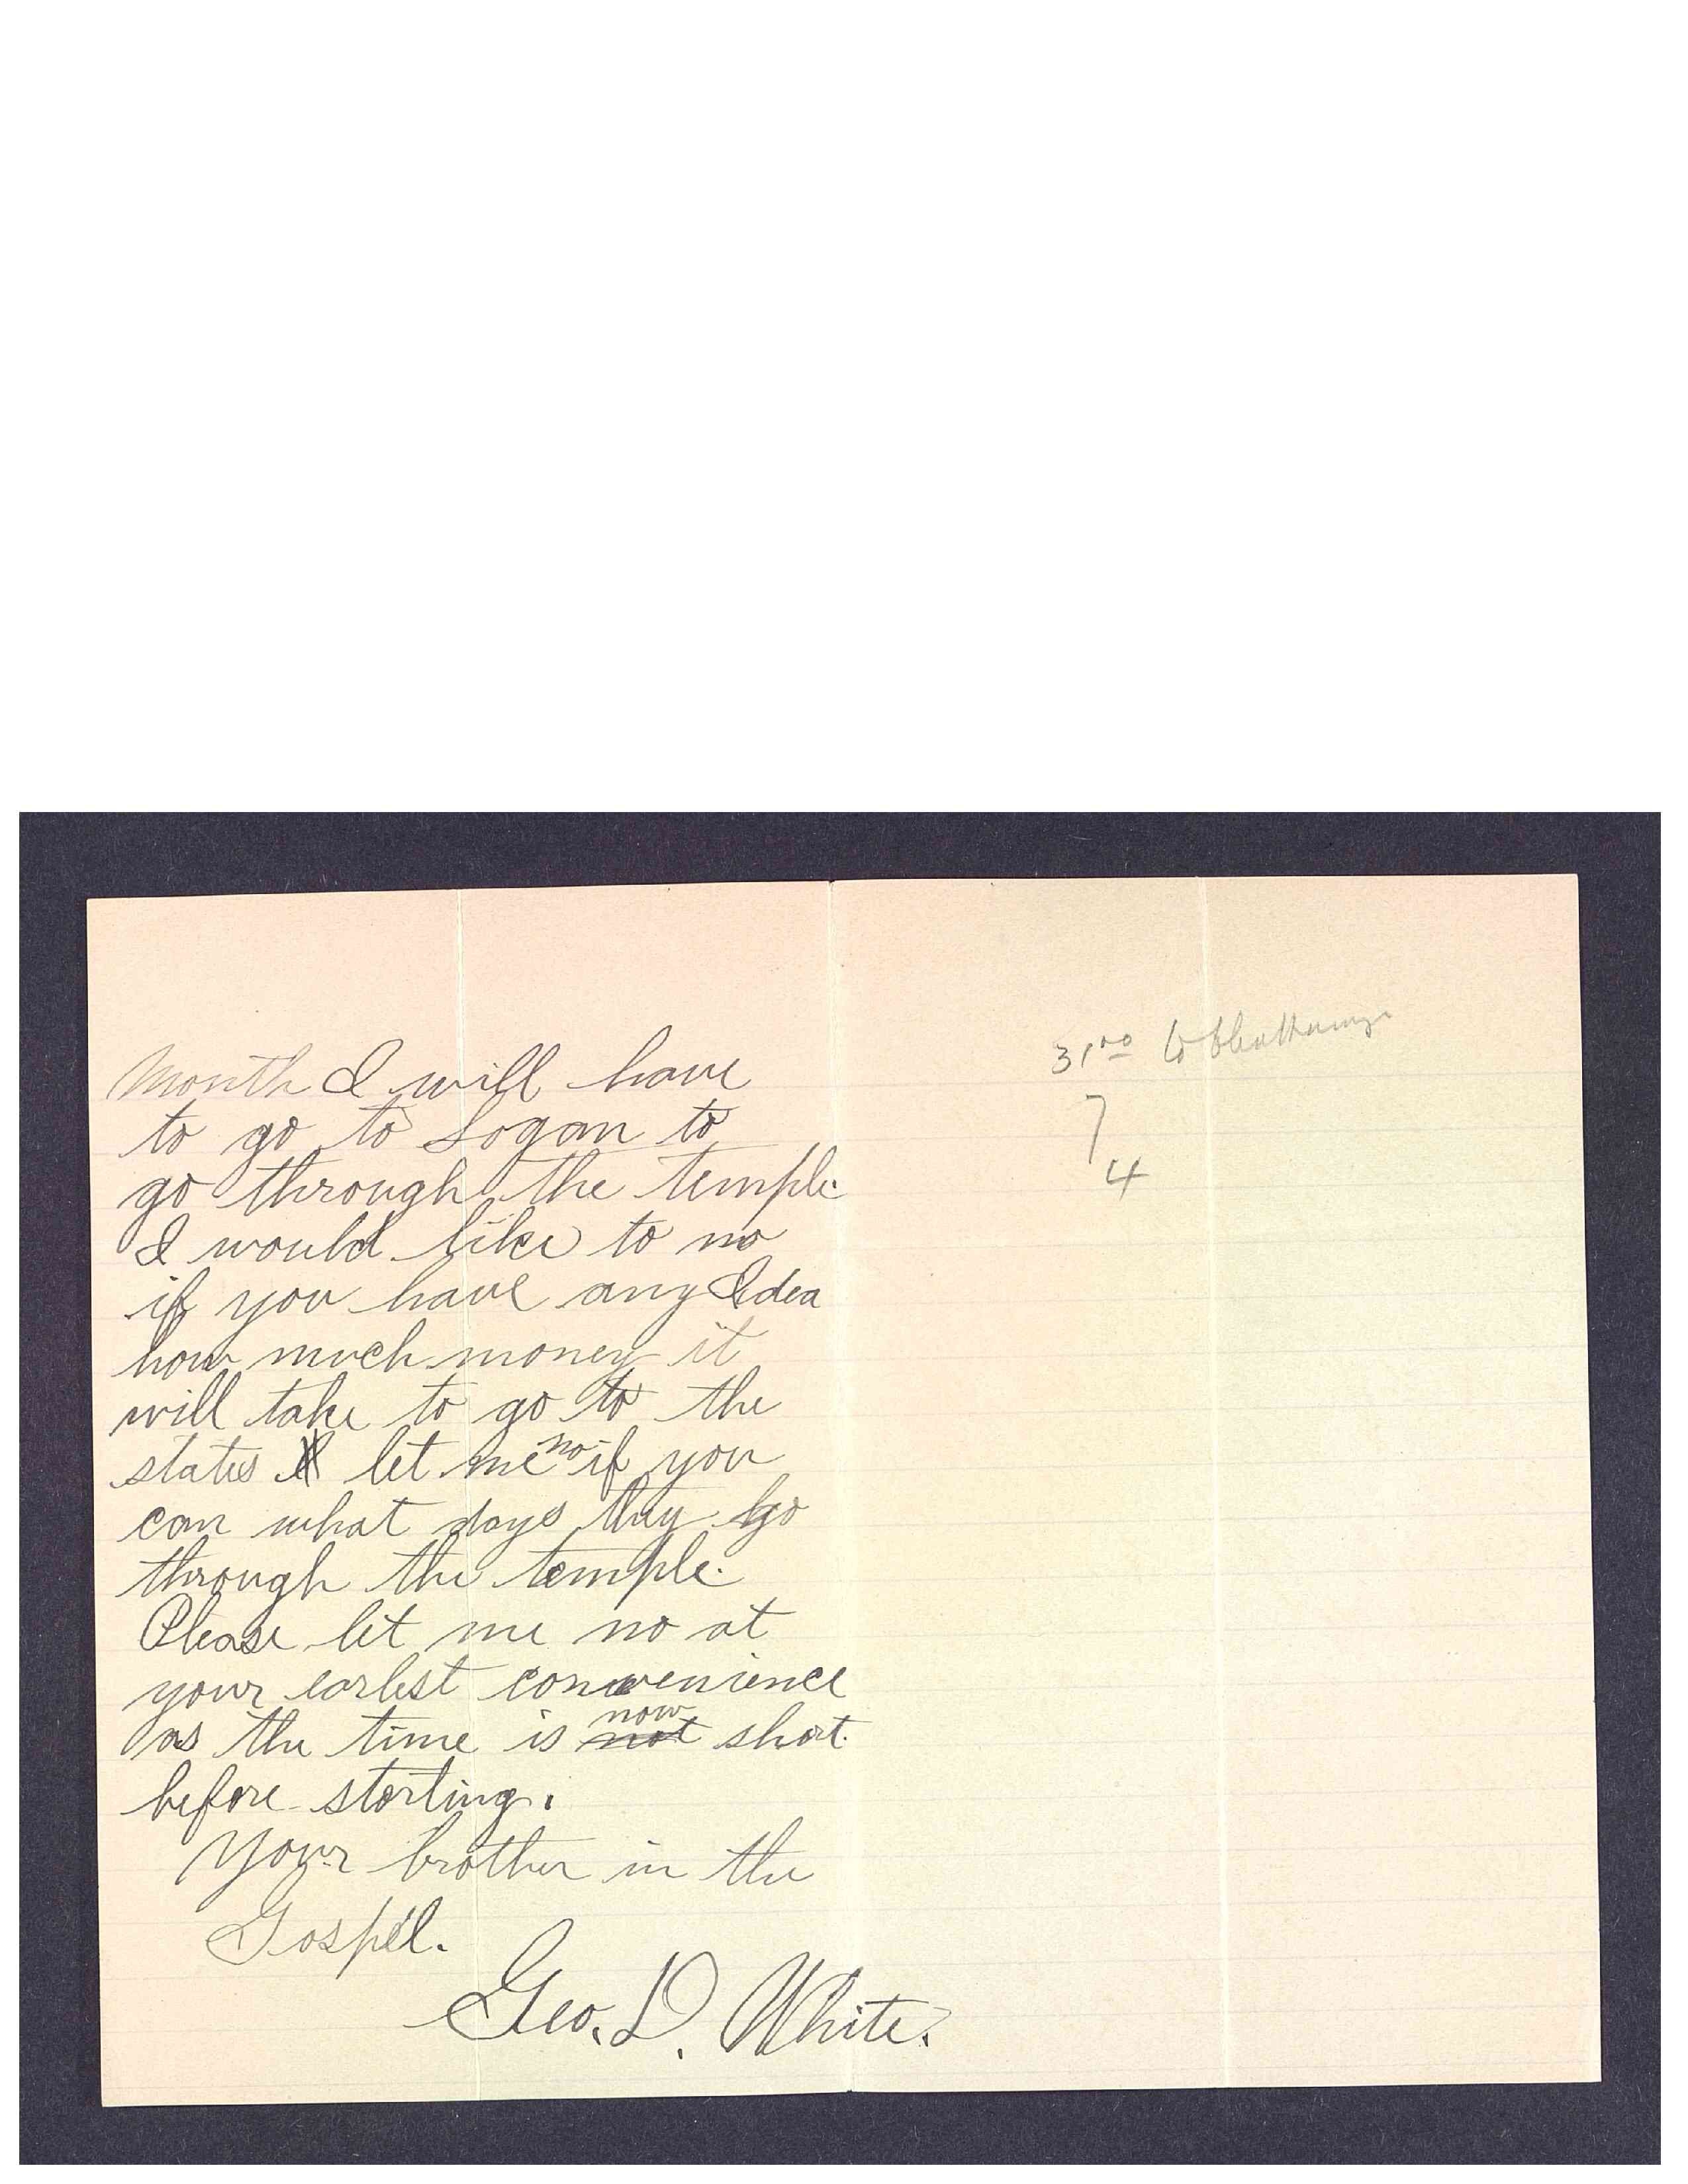 Month I will have
to go to Logan to
go through the temple.
I would like to no
if you have any Idea
how much money it
will take to go to the
states let me no if you
can what days they go
through the temple.
Please let me no at
your earlest convenience
as the time is now not short.
before sterting.
Your brother in the
Gospel.
Geo. D. White.
31 00 to Chattanoga
7
4